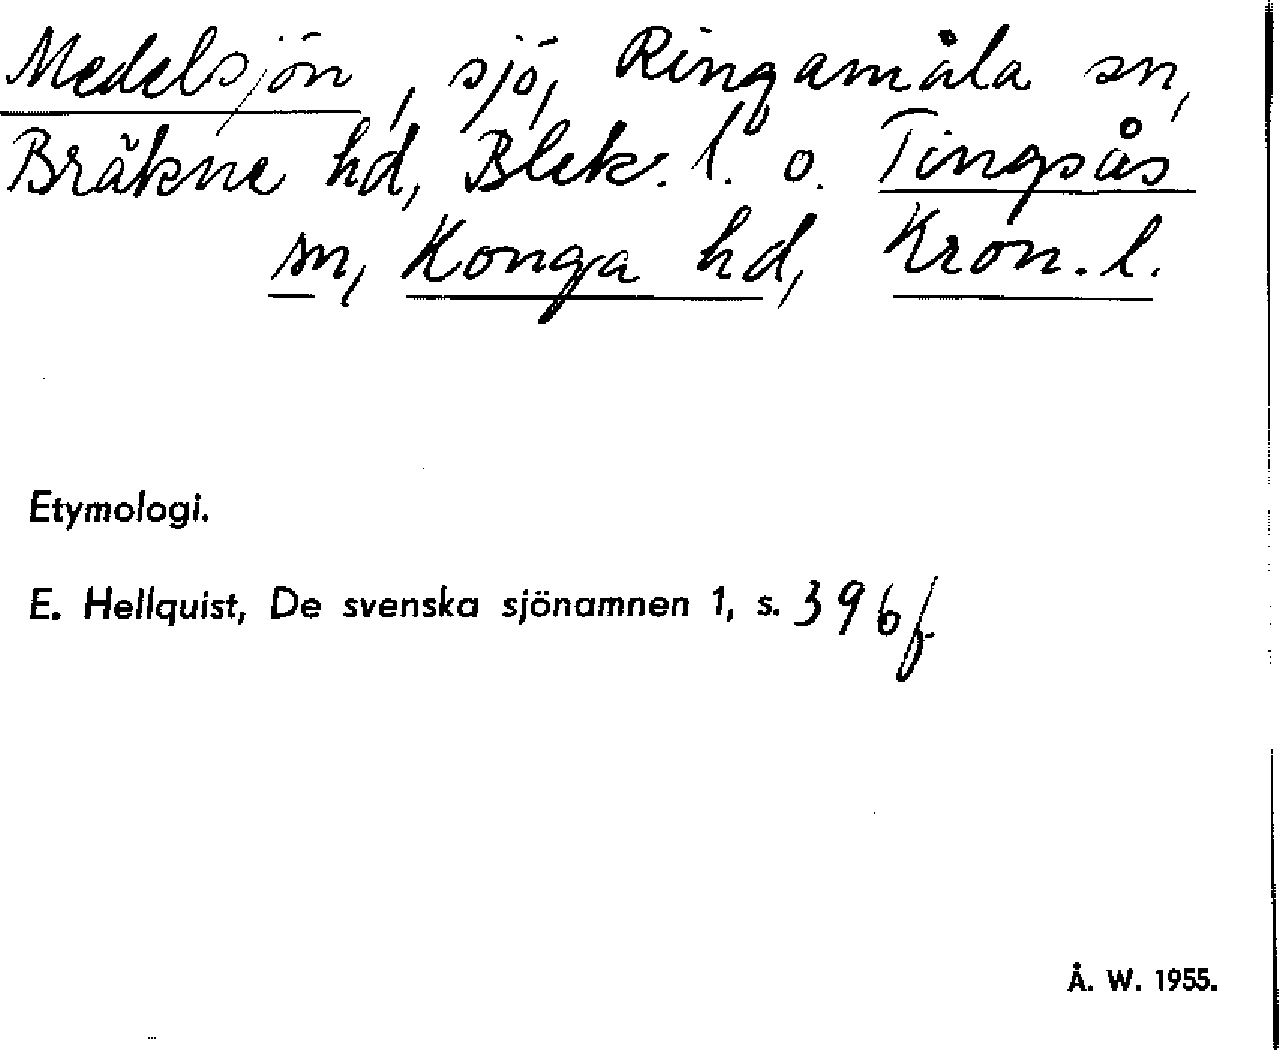 Medelsjön, sjö, Ringamåla sn,
Bräkne hd, Blek. l. o. Tingsås
sn, Konga hd, Kron. l.
Etymologi.
E. Hellquist, De svenska sjönamnen 1, s. 396 f.
Å. W. 1955.